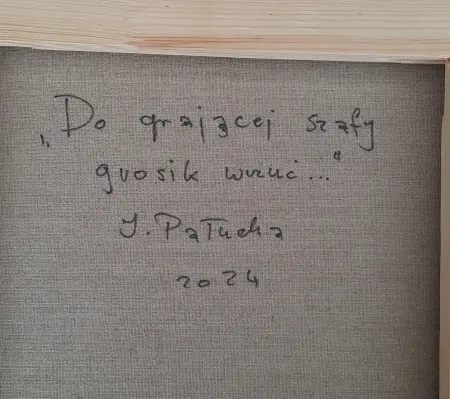 „Do grającej szafy
grosik wrzuć..."
J. Pałucha
2024